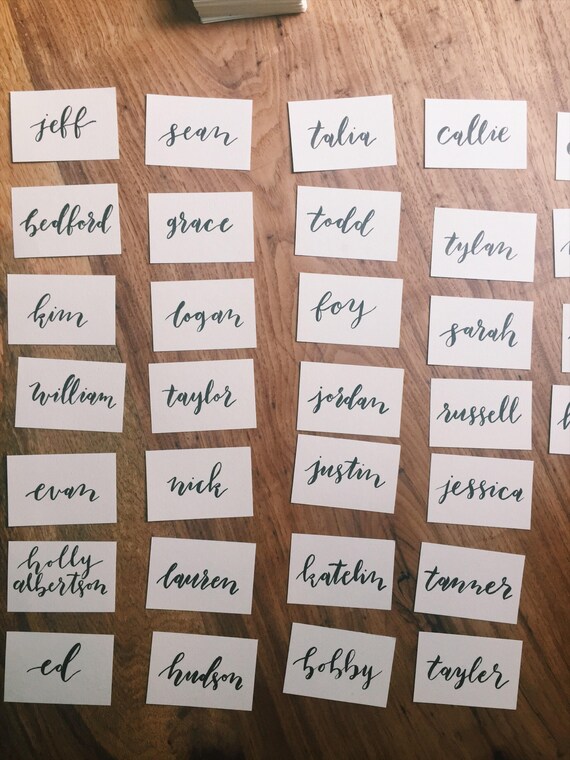 jeff
sean
talia
callie
bedford
grace
todd
tylan
kim
logan
foy
sarah
william
taylor
jordan
russell
evan
nick
justin
jessica
holly
albertson
lauren
katelin
tanner
ed
hudson
bobby
tayler